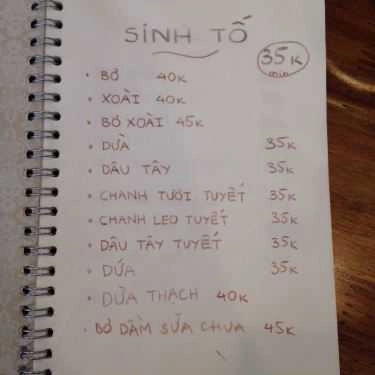 SINH TỐ
35K
• BƠ 40K
• XOÀI 40K
• BƠ XOÀI 45K
• DỪA 35K
• DÂU TÂY 35K
• CHANH TƯƠI TUYẾT 35K
• CHANH LEO TUYẾT 35K
• DÂU TÂY TUYẾT 35K
• DỨA 35K
• DỪA THẠCH 40K
• BƠ DẦM SỮA CHUA 45K